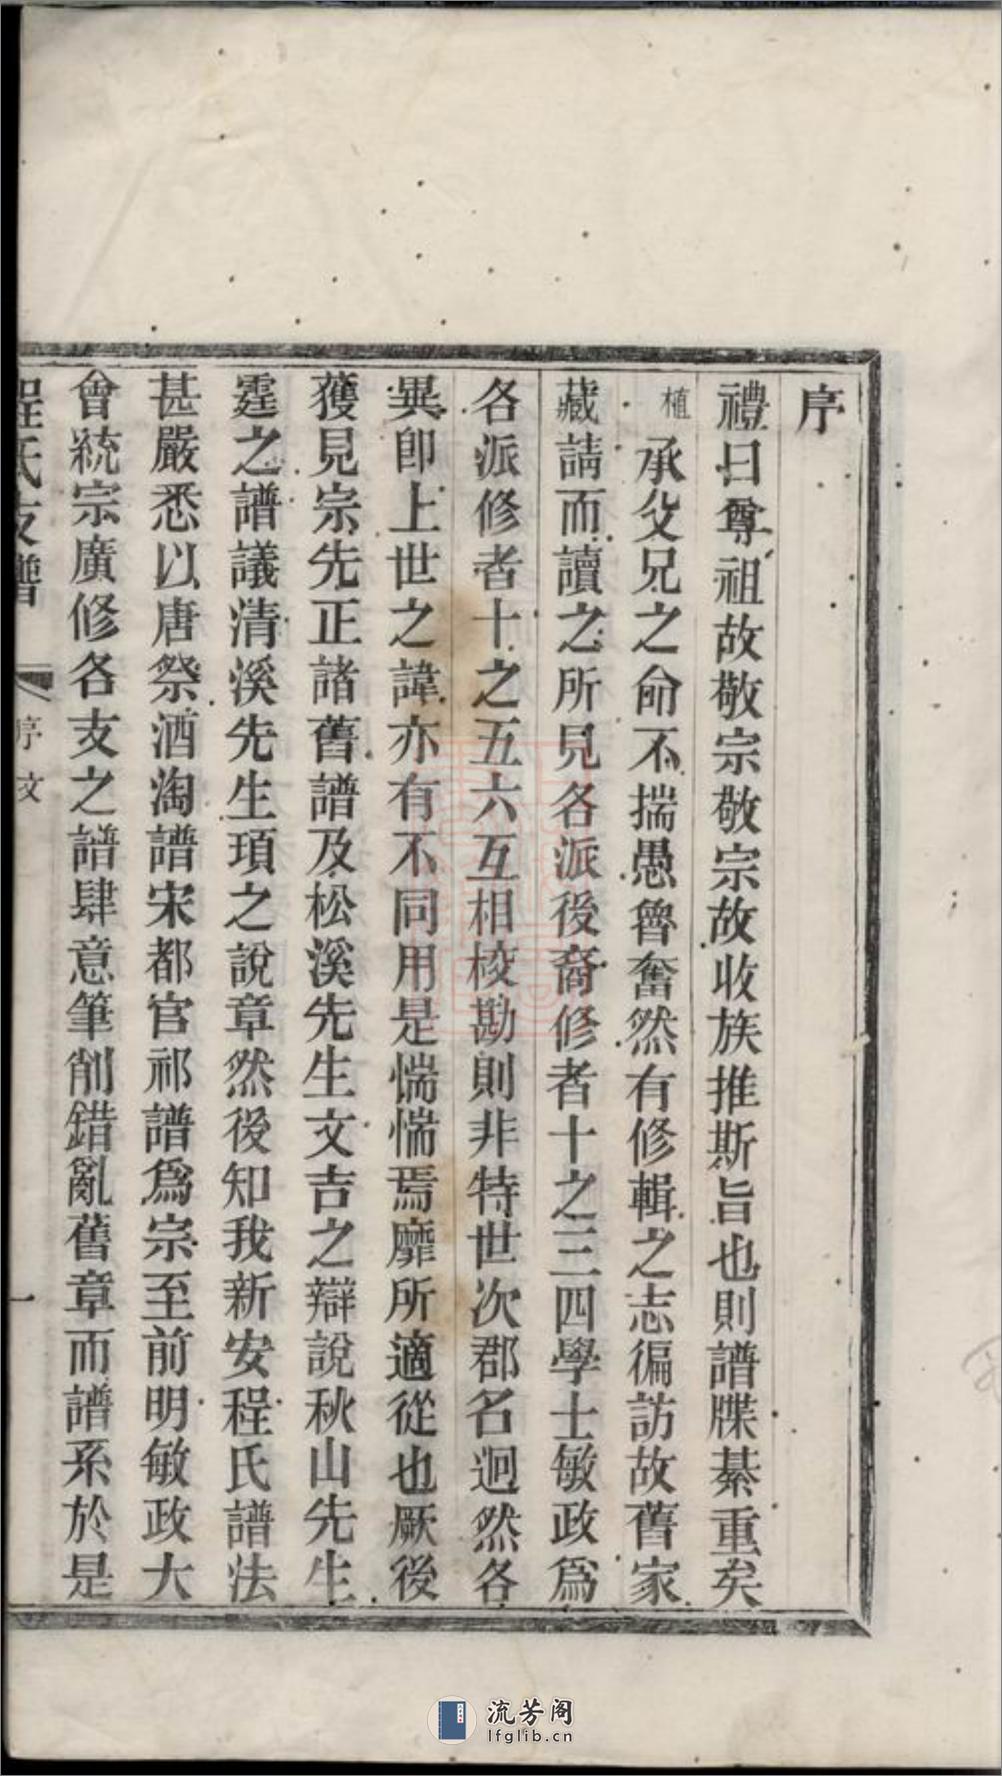 序
禮曰尊祖故敬宗敬宗故收族推斯旨也則譜牒綦重矣
植承父兄之命不揣愚魯奮然有修輯之志徧訪故舊家
藏請而讀之所見各派後裔修者十之三四學士敏政爲
各派修者十之五六互相校勘則非特世次郡名迥然各
異卽上世之諱亦有不同用是惴惴焉靡所適從也厥後
獲見宗先正諸舊譜及松溪先生文吉之辯說秋山先生
霆之譜議清溪先生頊之說章然後知我新安程氏譜法
甚嚴悉以唐祭酒淘譜宋都官祁譜爲宗至前明敏政大
會統宗廣修各支之譜肆意筆削錯亂舊章而譜系於是
程氏支譜
序文
一
流芳阁
lfglib.cn